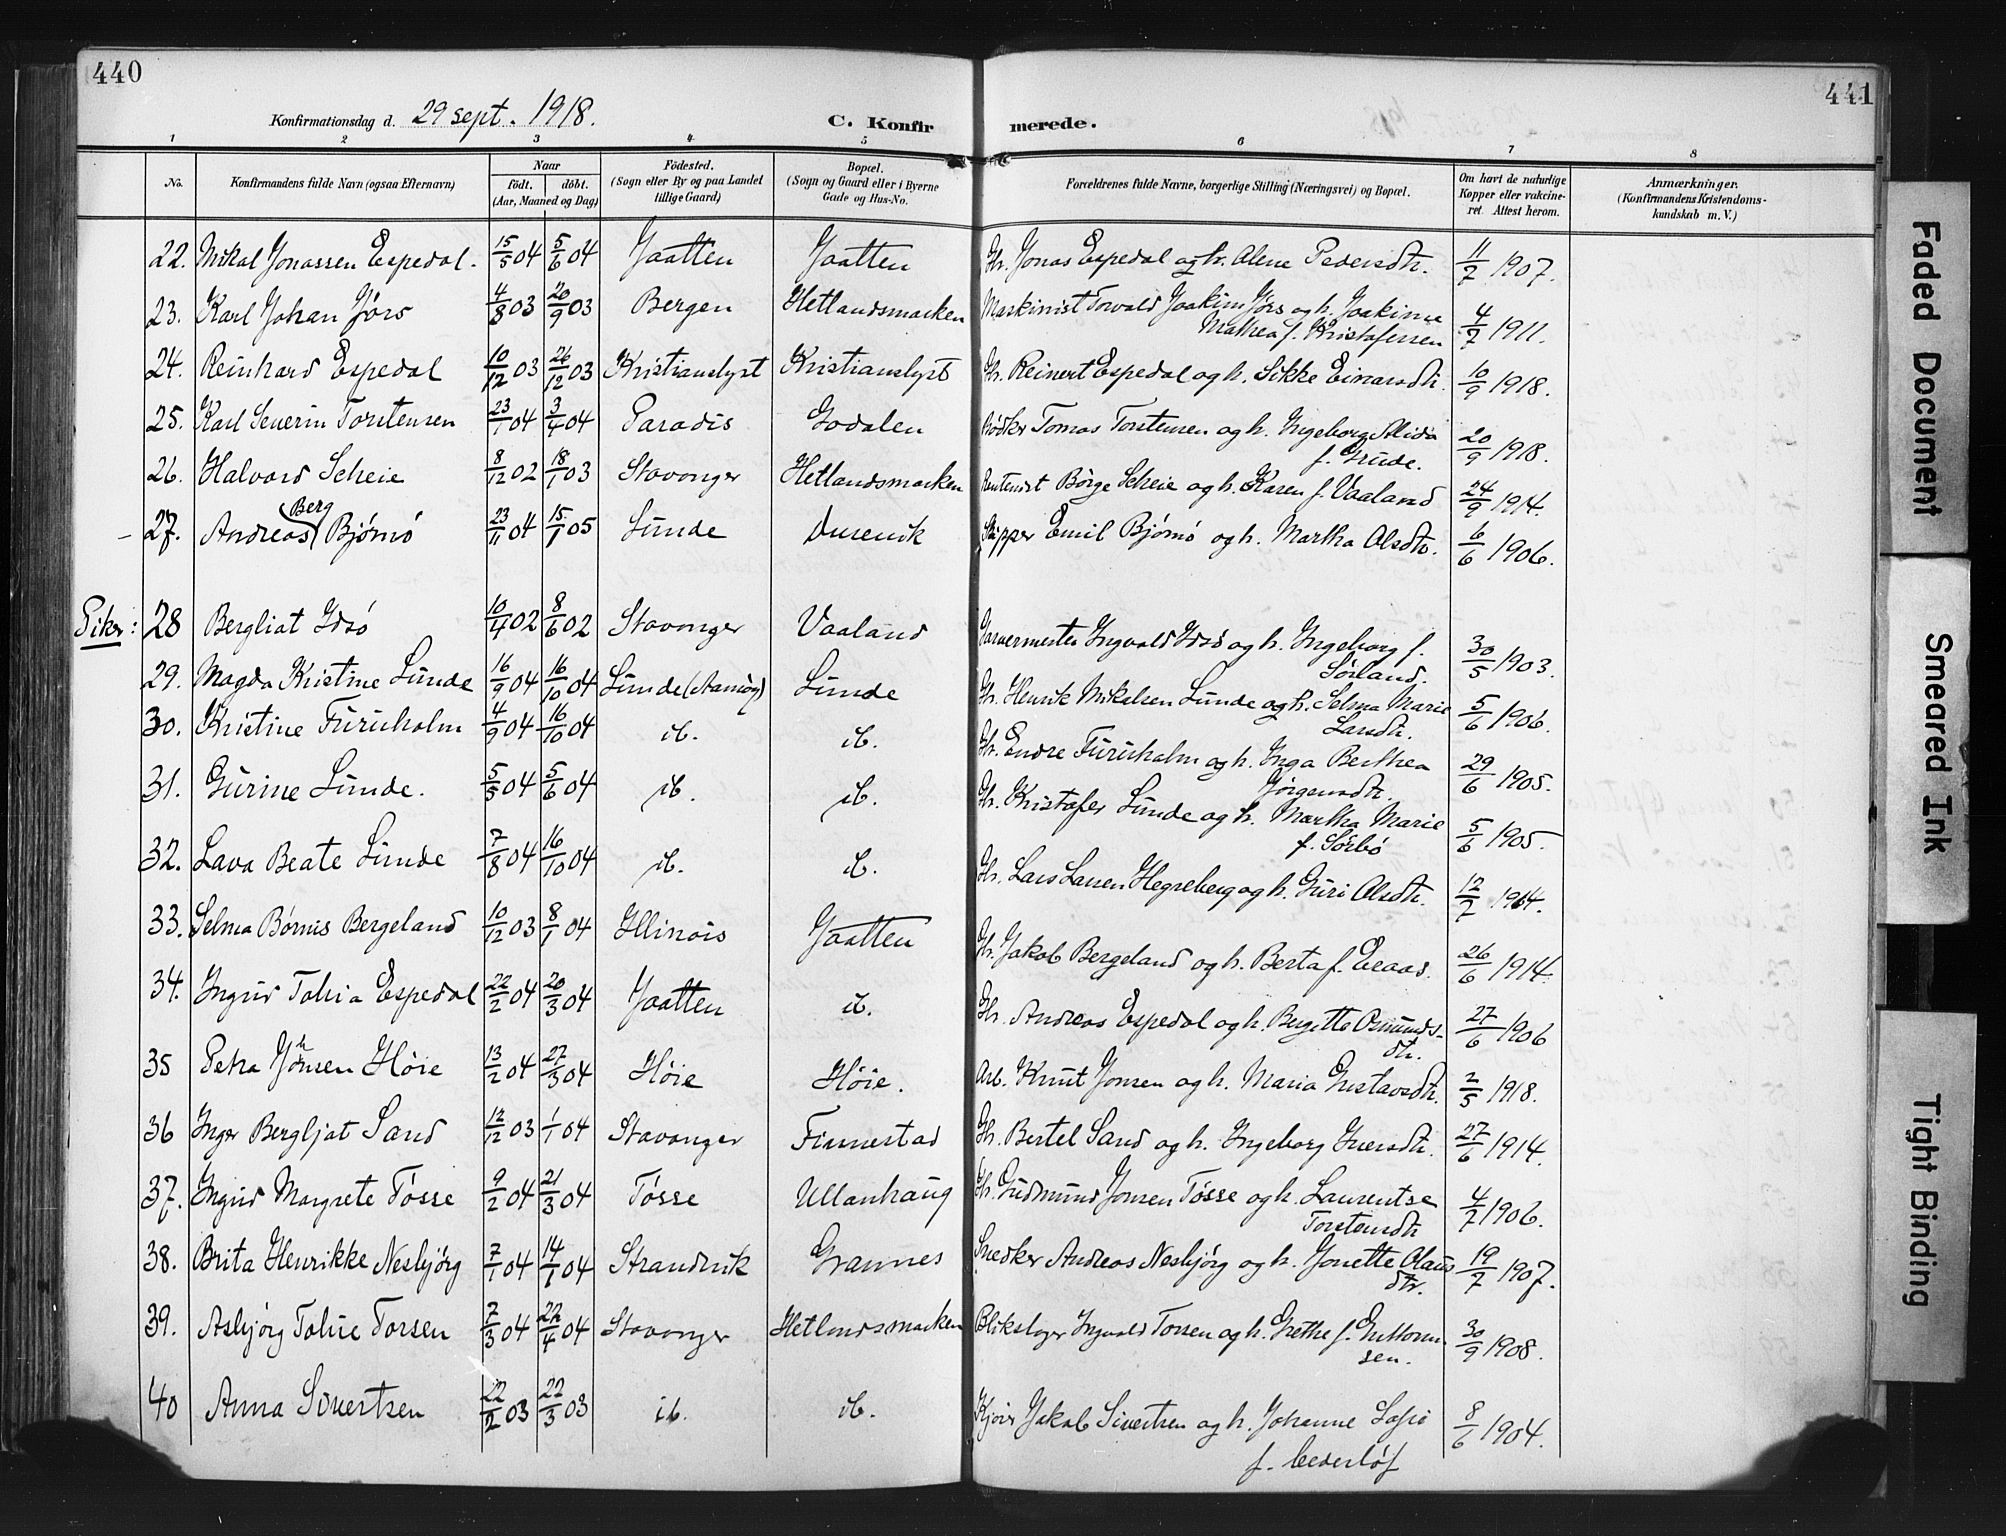 440
441
Konfirmationsdag d. 29 sept. 1918.
C. Konfirmerede.
1 2 3 4 5 6 7 8
No. Konfirmandens fulde Navn (ogsaa Efternavn) Naar født. døbt. (Aar, Maaned og Dag) Fødested. (Sogn eller By og paa Landet tillige Gaard) Bopæl. (Sogn og Gaard eller i Byerne Gade og Hus-No. Forældrenes fulde Navne, borgerlige Stilling (Næringsvei) og Bopæl. Om havt de naturlige Kopper eller vakcineret. Attest herom. Anmærkninger. (Konfirmandens Kristendomskundskab m. V.)
22. Mikal Jonassen Espedal. 15/5 04 5/6 04 Jaatten Jaatten Gb. Jonas Espedal og h. Alene Pedersdtr. 11/7 1907.
23. Karl Johan Jørs 4/8 03 20/9 03 Bergen Hetlandsmarken Maskinist Torvald Joakim Jørs og h. Joakime
Mathea f. Kristofersen 4/7 1911.
24. Reinhard Espedal 10/12 03 26/12 03 Kristianslyst Kristianslyst Gb. Reinert Espedal og h. Sikke Einarsdtr. 10/9 1918.
25. Karl Severin Torstensen 23/1 04 3/4 04 Paradis Godalen Bødker Tomas Torstensen og h. Ingeborg Alida
f. Grude. 20/9 1918.
26. Halvard Scheie 8/12 02 18/1 03 Stavanger Hetlandsmarken Rentenist Børge Scheie og h. Karen f. Vaaland 24/9 1914.
Berg
27. Andreas Bjørnø 23/11 04 15/1 05 Lunde Dusevik Skipper Emil Bjørnø og h. Martha Olsdtr. 6/6 1906.
Piker: 28 Bergliat Idsø 10/4 02 8/6 02 Stavanger Vaaland Garvermester Ingvald Idsø og h. Ingeborg f.
Sørland. 30/5 1903.
29. Magda Kristine Lunde 16/9 04 16/10 04 Lunde (Aamøy) Lunde Gb. Henrik Mikalsen Lunde og h. Selma Marie
Larsdtr. 5/6 1906.
30. Kristine Furuholm 4/9 04 16/10 04 ib. ib. Gb. Endre Furuholm og h. Inga Berthea
Jørgensdtr. 29/6 1905.
31. Gurine Lunde. 5/5 04 5/6 04 ib. ib. Gb. Kristofer Lunde og h. Martha Marie
f. Sørbø 5/6 1905.
32. Lava Beate Lunde 7/8 04 16/10 04 ib. ib. Gb. Lars Larsen Hegreberg og h. Guri Olsdtr. 12/7 1914.
33. Selma Børnis Bergeland 10/12 03 8/1 04 Illinois Jaatten Gb. Jakob Bergeland og h. Berta f. Eeaas. 26/6 1914.
34. Ingrid Tobia Espedal 22/2 04 20/3 04 Jaatten ib. Gb. Andreas Espedal og h. Bergitte Omunds-
dtr. 27/6 1906
35 Petra Johnsen Høie 13/2 04 27/3 04 Høie Høie. Arb. Knut Jonsen og h. Maria Gustavsdtr. 2/5 1918.
36 Inger Bergljot Sand 12/12 03 1/1 04 Stavanger Finnestad Gb. Bertel Sand og h. Ingeborg Iversdtr. 27/6 1914.
37. Ingrid Margrete Tøsse 9/2 04 21/3 04 Tøsse Ullanhaug Gb. Gudmund Jonsen Tøsse og h. Laurentse
Torstensdtr 4/7 1906.
38. Brita Henrikke Nesbjørg 7/1 04 14/1 04 Strandvik Grannes Snedker Andreas Nesbjørg og h. Jonette Olaus
dtr. 19/7 1907.
39. Asbjørg Toline Torsen 7/3 04 22/4 04 Stavanger Hetlandsmarken Blikslager Ingvald Torsen og h. Grethe f. Guttorm-
sen. 30/9 1908.
40 Anna Sivertsen 22/2 03 22/3 03 ib. ib. Kjører Jakob Sivertsen og h. Johanne Sofie
f. Cederløf 8/6 1904.
Faded Document
Smeared Ink
Tight Binding